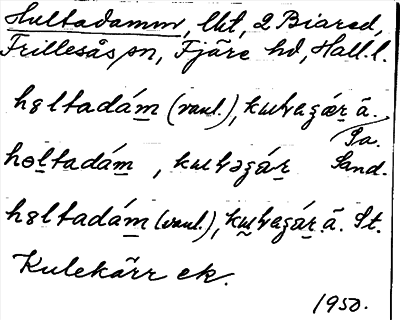 Hultadamm, lht, 2 Biared,
Frillesås sn, Fjäre hd, Hall. l.
hɵltadám (vanl.), kuvagǽr ä.
Pa.
hɵltadám, kuvəgár Sand.
hɵltadám (vanl.), kuvagár. ä. St.
Kulekärr ek.
1950.